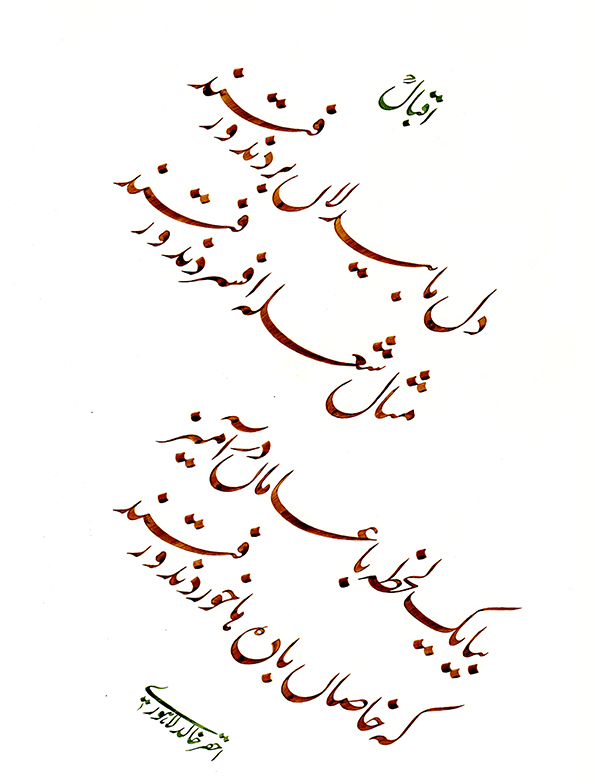 اقبالؒ
دل ما بیدلاں بردند و رفتند
مثال شعلہ افسردند و رفتند
بیا یک لحظہ با عاماں درآمیز
کہ خاصاں بادہ ہا خوردند و رفتند
احقر خالد لاہوری